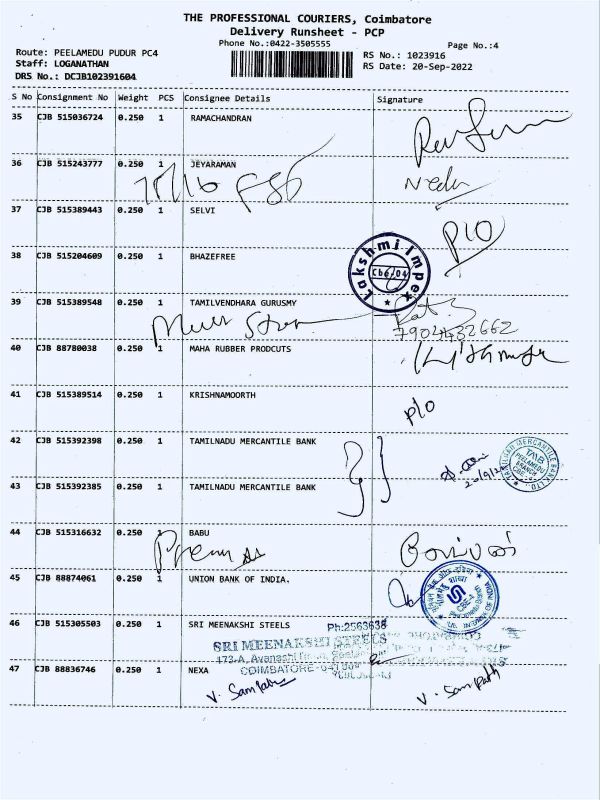 THE PROFESSIONAL COURIERS, Coimbatore
Delivery Runsheet - PCP
Phone No.:0422-3505555
Page No.:4
Route: PEELAMEDU PUDUR PC4
RS No.: 1023916
Staff: LOGANATHAN
RS Date: 20-Sep-2022
DRS No.: DCJB102391604
S No Consignment No Weight PCS Consignee Details Signature
35 CJB 515036724 0.250 1 RAMACHANDRAN
36 CJB 515243777 0.250 1 JEYARAMAN
37 CJB 515389443 0.250 1 SELVI
P/O
38 CJB 515204609 0.250 1 BHAZEFREE
Lakshmi Impex
39 CJB 515389548 0.250 1 TAMILVENDHARA GURUSMY
7904432662
40 CJB 88780038 0.250 1 MAHA RUBBER PRODCUTS
41 CJB 515389514 0.250 1 KRISHNAMOORTH
P/O
42 CJB 515392398 0.250 1 TAMILNADU MERCANTILE BANK
TAMILNAD MERCANTILE BANK LTD.
TMB
PEELAMEDU
BRANCH
43 CJB 515392385 0.250 1 TAMILNADU MERCANTILE BANK
44 CJB 515316632 0.250 1 BABU
45 CJB 88874061 0.250 1 UNION BANK OF INDIA.
46 CJB 515305503 0.250 1 SRI MEENAKSHI STEELS
Ph:2563638
SRI MEENAKSHI STEELS
COIMBATORE
47 CJB 88836746 0.250 1 NEXA
V. Sampath
V. Sampath